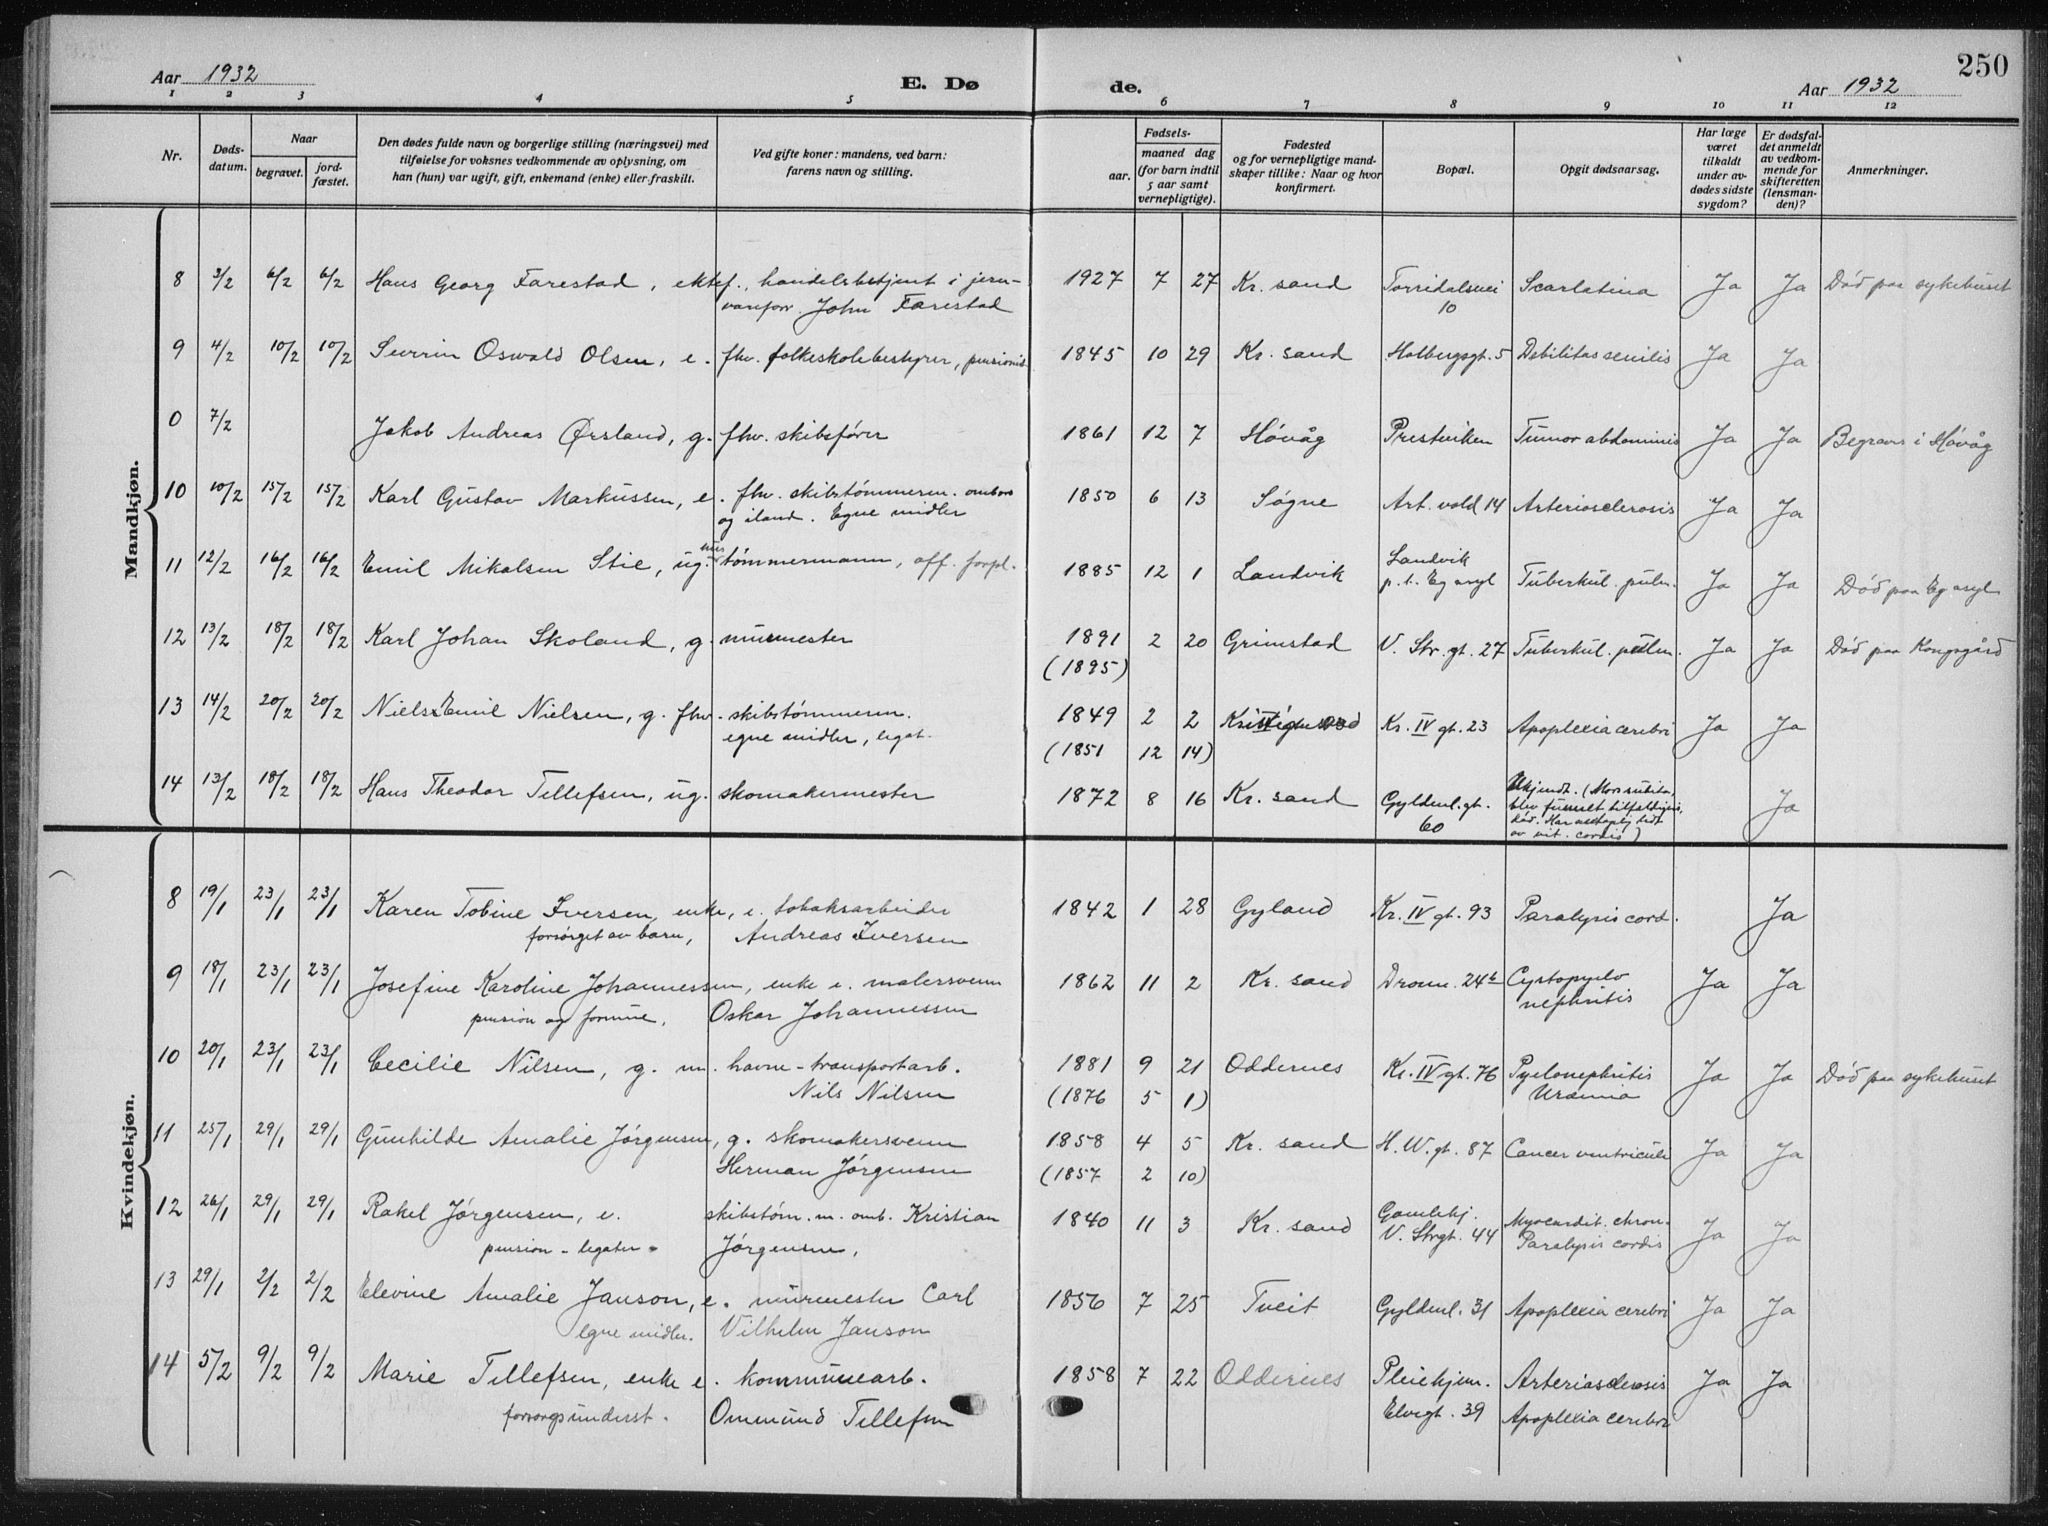 250
Aar 1932 E. Dø de. Aar 1932
1 2 3 4 5 6 7 8 9 10 11 12
Nr. Døds-datum. Naar begravet. jord-fæstet. Den dødes fulde navn og borgerlige stilling (næringsvei) med tilføielse for voksnes vedkommende av oplysning, om han (hun) var ugift, gift, enkemand (enke) eller fraskilt. Ved gifte koner: mandens, ved barn: farens navn og stilling. Fødsels- aar. maaned dag (for barn indtil 5 aar samt vernepligtige). Fødested og for vernepligtige mand-skaper tillike: Naar og hvor konfirmert. Bopæl. Opgit dødsaarsag. Har læge været tilkaldt under av-dødes sidste sygdom? Er dødsfal-det anmeldt av vedkom-mende for skifteretten (lensman-den)? Anmerkninger.
Mandkjøn.
8 3/2 6/2 6/2 Hans Georg Farestad, ektef., handelsbetjent i jern- 1927 7 27 Kr. sand Torridalsvei Scarlatina Ja Ja Død paa sykehuset
varefor. John Farestad 10
9 4/2 10/2 10/2 Severin Oswald Olsen, e. fhv. folkeskolebestyrer, pensionist 1845 10 29 Kr. sand Holbergsgt. 5 Debilitas senilis Ja Ja
0 7/2 Jakob Andreas Ørsland, g. fhv. skibsfører 1861 12 7 Høvåg Prestviken Tumor abdominis Ja Ja Begraves i Høvåg
10 10/2 15/2 15/2 Karl Gustav Markussen, e. fhv. skibstømmerm. ombord 1850 6 13 Søgne Art. vold 14 Arteriosclerosis Ja Ja
og iland. Egne midler
11 12/2 16/2 16/2 Emil Mikalsen Stie, ug. tømmermann, off. forpl. 1885 12 1 Landvik Landvik Tuberkul. pulm. Ja Ja Død paa Eg asyl
p. t. Eg asyl
12 13/2 18/2 18/2 Karl Johan Skoland, g. murmester 1891 2 20 Grimstad V. Str. gt. 27 Tuberkul. pulm. Ja Ja Død paa Kongsgård
(1895)
13 14/2 20/2 20/2 Niels Emil Nielsen, g. fhv. skibstømmerm. 1849 2 2 Kristiansand Kr. IV gt. 23 Apoplexia cerebri Ja Ja
egne midler, legat. (1851 12 14)
14 13/2 18/2 18/2 Hans Theodor Tellefsen, ug. skomakermester 1872 8 16 Kr. sand Gyldenl. gt. Ukjendt. (Mors subita, Ja
60 blev funnet tilfældigvis
død. Har antagelig lidt
av vit. cordis)
Kvindekjøn.
8 19/1 23/1 23/1 Karen Tobine Iversen, enke, e. tobaksarbeider 1842 1 28 Gyland Kr. IV gt. 93 Paralysis cord. Ja
forsørget av barn, Andreas Iversen
9 18/1 23/1 23/1 Josefine Karoline Johannessen, enke e. malersvenn 1862 11 2 Kr. sand Dronn. 24b Cystopyelo Ja Ja
pension og formue, Oskar Johannessen nephritis
10 20/1 23/1 23/1 Cecilie Nilsen, g. m. havne-transportarb. 1881 9 21 Oddernes Kr. IV gt. 76 Pyelonephritis Ja Ja Død paa sykehuset
Nils Nilsen (1876 5 1) Uræmia
11 25/1 29/1 29/1 Gunhilde Amalie Jørgensen, g. skomakersvenn 1858 4 5 Kr. sand H. W. gt. 87 Cancer ventriculi Ja Ja
Herman Jørgensen (1857 2 10)
12 26/1 29/1 29/1 Rakel Jørgensen, e. skibstøm. m. omb. Kristian 1840 11 3 Kr. sand Gamlehj. Myocardit. chron. Ja Ja
pension - legater - Jørgensen, V. Strgt. 44 Paralysis cordis
13 29/1 2/2 2/2 Elevine Amalie Janson, e. murmester Carl 1856 7 25 Tveit Gyldenl. 31 Apoplexia cerebri Ja Ja
egne midler. Vilhelm Janson
14 5/2 9/2 9/2 Marie Tellefsen, enke e. kommunearb. 1858 7 22 Oddernes Pleiehjem. Arteriosclerosis Ja Ja
forsorgsunderst. Ommund Tellefsen Elvegt. 39 Apoplexia cerebri